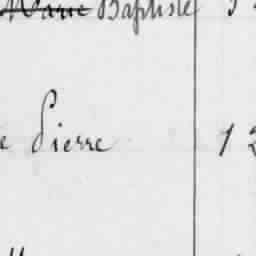 Marie Baptiste
e Pierre 1 2